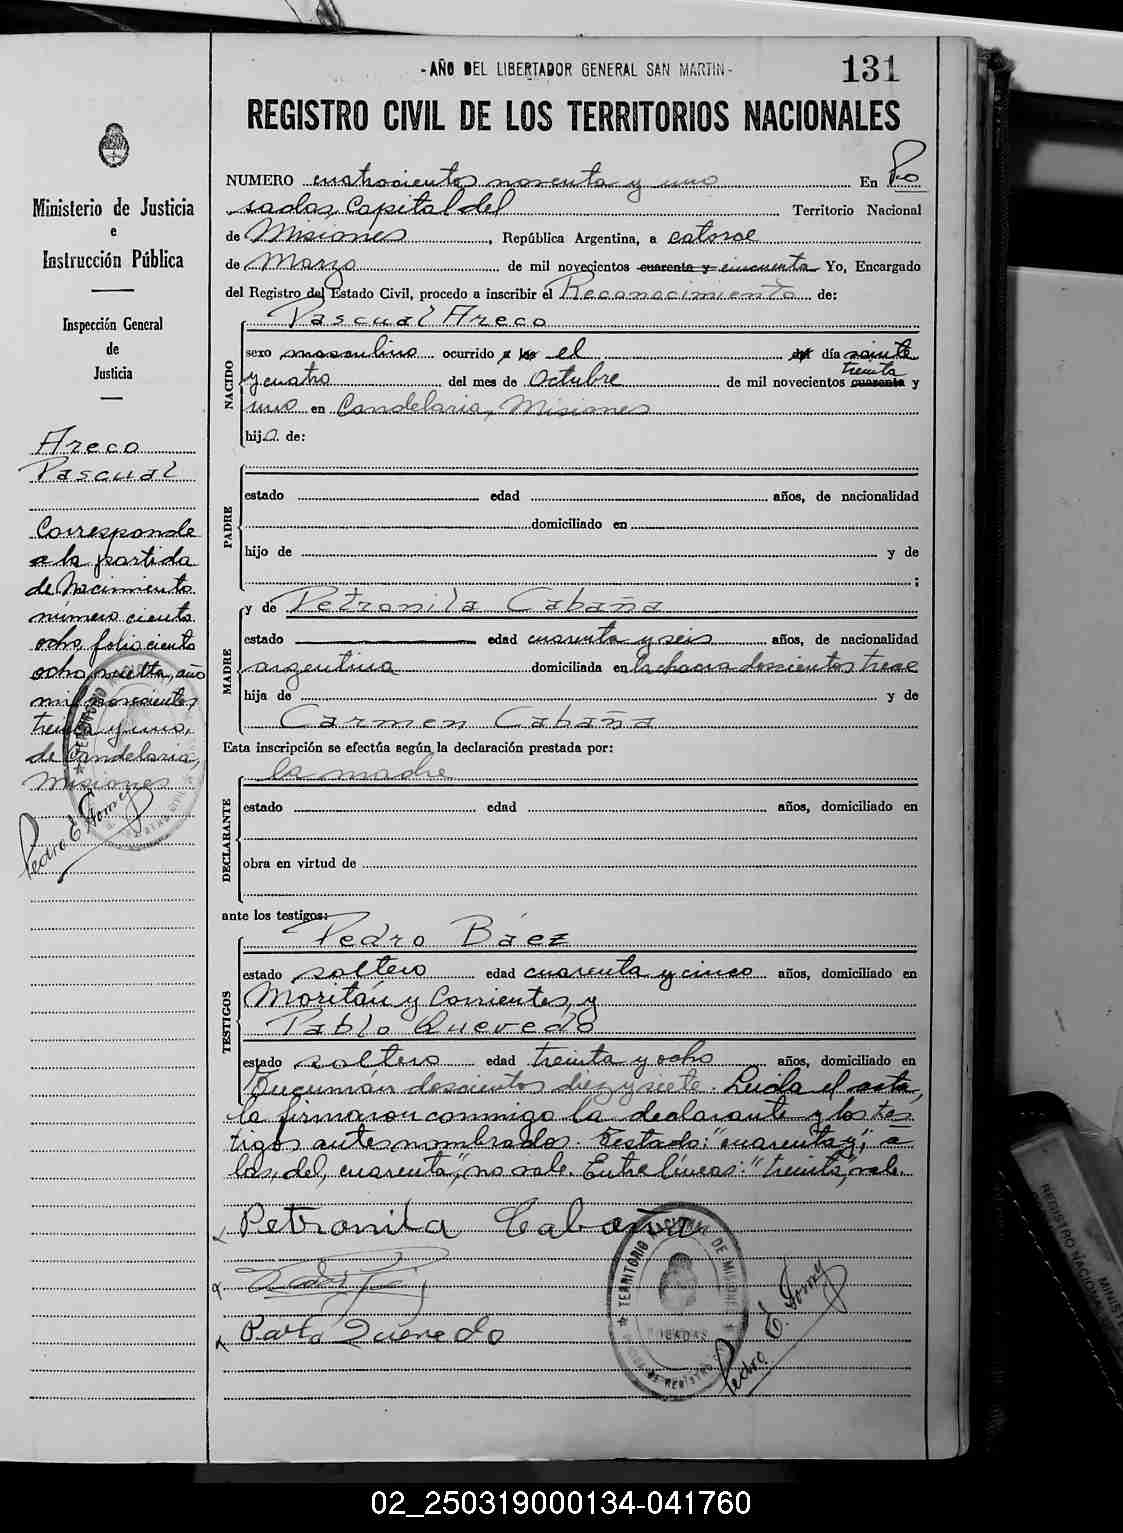 -AÑO DEL LIBERTADOR GENERAL SAN MARTIN-
131
REGISTRO CIVIL DE LOS TERRITORIOS NACIONALES
Ministerio de Justicia
e
Instrucción Pública
Inspección General
de
Justicia
Areco
Pascual
Corresponde
a la partida
de Nacimiento
número ciento
ocho, folio ciento
ocho vuelta, año
mil novecientos
treinta y uno,
de Candelaria,
Misiones
Pedro E. Gomez
NUMERO cuatrocientos noventa y uno En Po
sadas, Capital del Territorio Nacional
de Misiones, República Argentina, a catorce
de Marzo de mil novecientos cuarenta y cincuenta Yo, Encargado
del Registro del Estado Civil, procedo a inscribir el Reconocimiento de:
Pascual Areco
NACIDO
sexo masculino ocurrido a las el del día veinte
treinta
y cuatro del mes de Octubre de mil novecientos cuarenta y
uno en Candelaria, Misiones
hijo de:
PADRE
estado edad años, de nacionalidad
domiciliado en
hijo de y de
;
y de Petronila Cabaña
MADRE
estado edad cuarenta y seis años, de nacionalidad
argentina domiciliada en la chacra doscientos trece
hija de y de
Carmen Cabaña
Esta inscripción se efectúa según la declaración prestada por:
la madre
DECLARANTE
estado edad años, domiciliado en
obra en virtud de
ante los testigos:
Pedro Báez
TESTIGOS
estado soltero edad cuarenta y cinco años, domiciliado en
Moritán y Corrientes, y
Pablo Quevedo
estado soltero edad treinta y ocho años, domiciliado en
Tucumán doscientos diez y siete. Leída el acta,
la firmaron conmigo la declarante y los tes
tigos antes nombrados. Testado: "cuarenta y", a
las, del, cuarenta", no vale. Entre líneas: "treinta", vale.
Petronila Cabaña
Pablo Quevedo
TERRITORIO NACIONAL DE MISIONES
POSADAS
Pedro E. Gomez
02_250319000134-041760